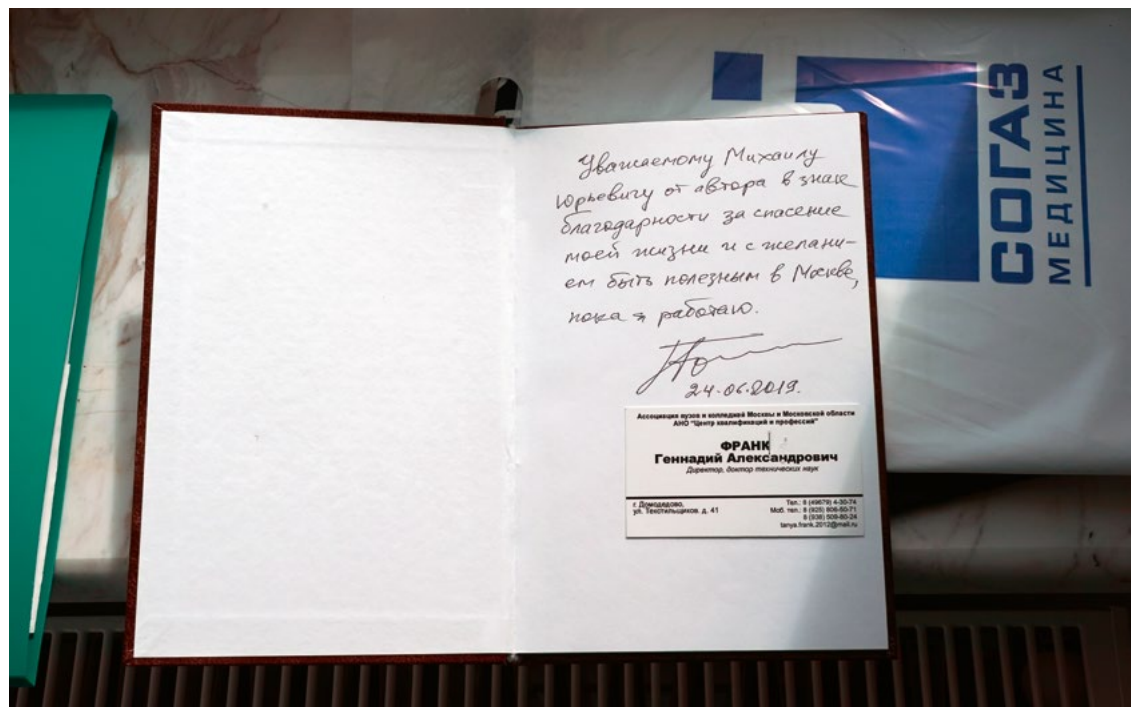 Уважаемому Михаилу
Юрьевичу от автора в знак
благодарности за спасение
моей жизни и с желани-
ем быть полезным в Москве,
пока я работаю.
24.06.2019.
Ассоциация вузов и колледжей Москвы и Московской области
АНО "Центр квалификаций и профессий"
ФРАНК
Геннадий Александрович
Директор, доктор технических наук
г. Домодедово,
ул. Текстильщиков, д. 41
Тел.: 8 (49679) 4-30-74
Моб. тел.: 8 (925) 806-50-71
8 (936) 509-80-24
tanya.frank.2012@mail.ru
СОГАЗ
МЕДИЦИНА